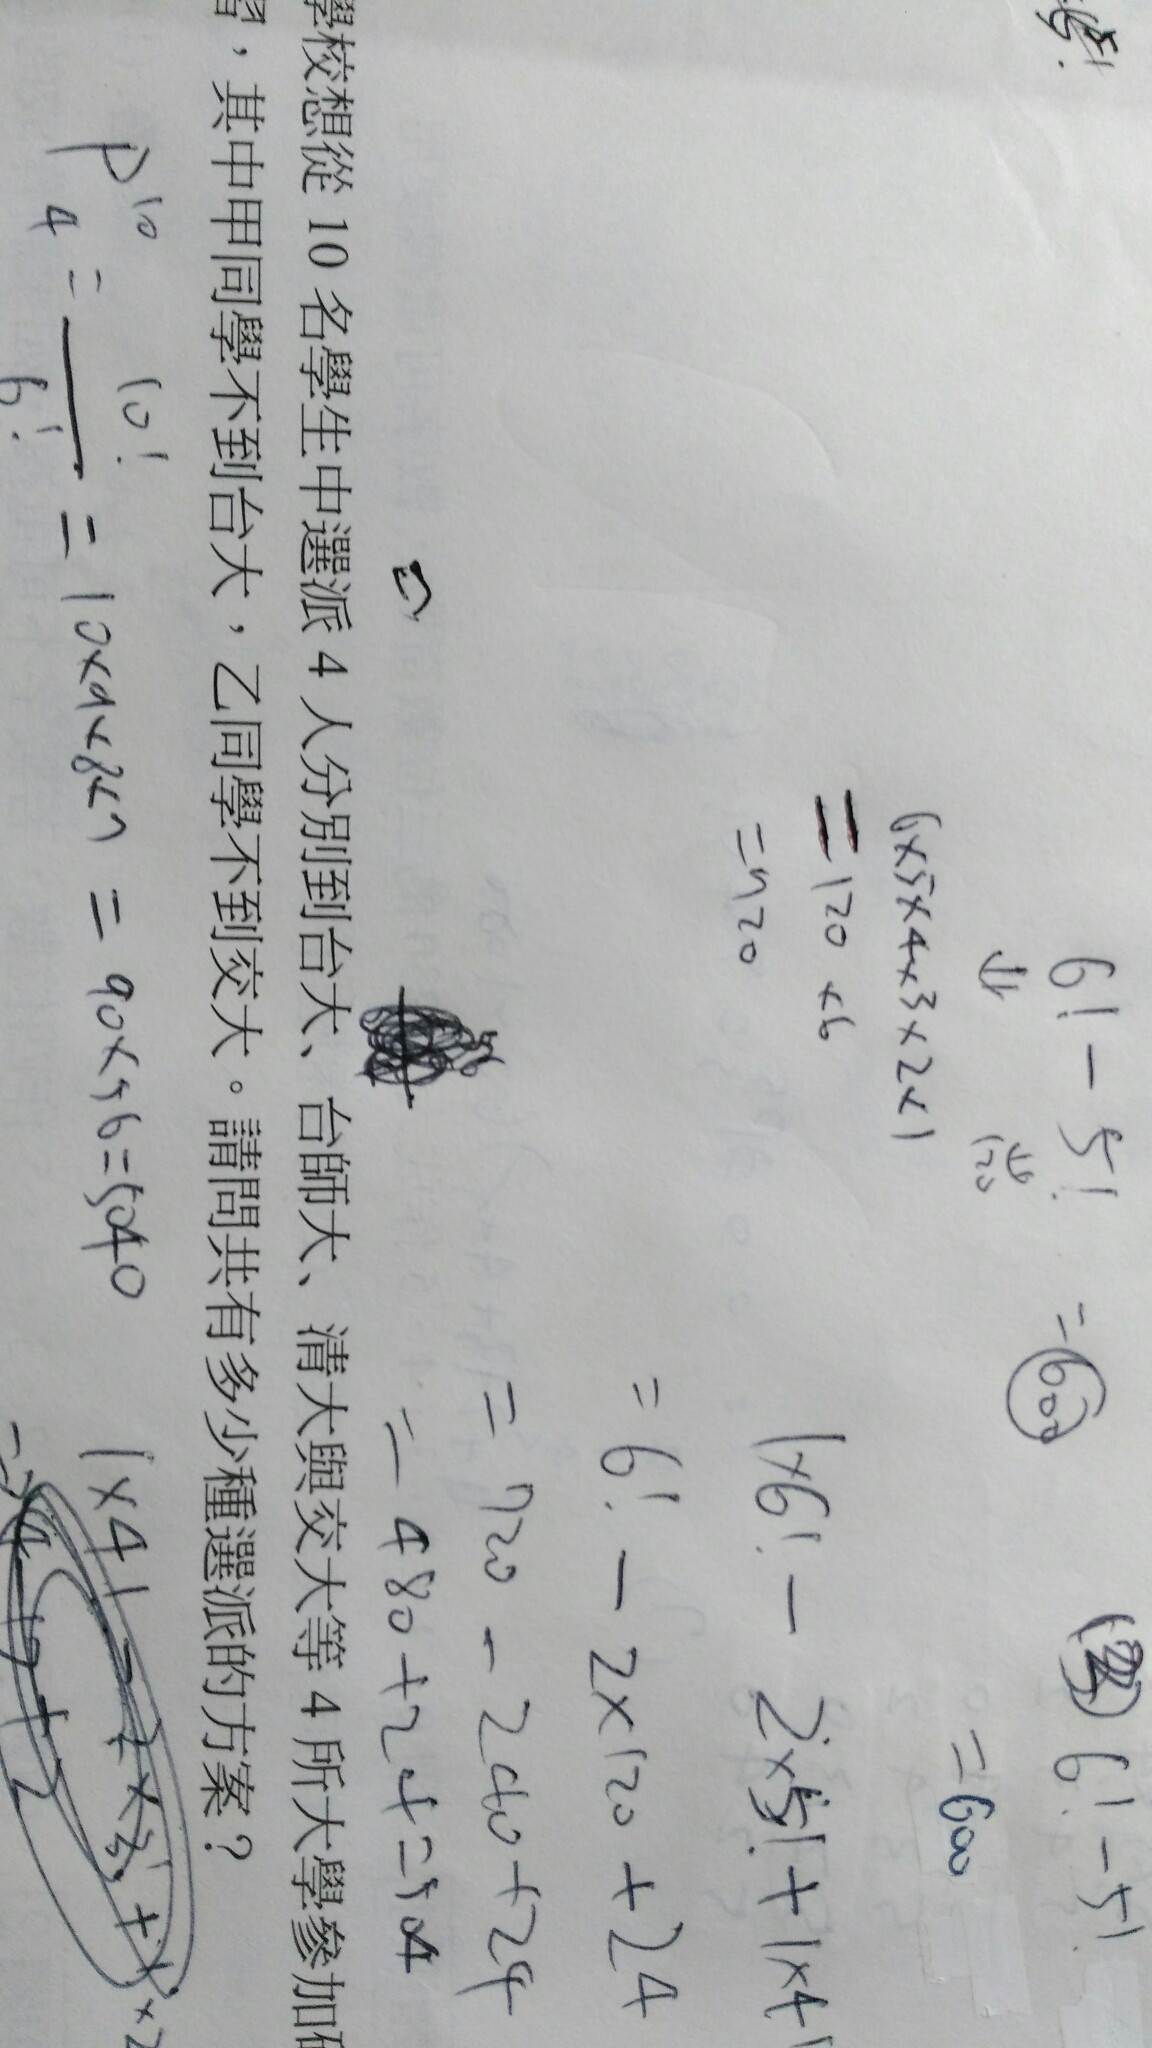 6! - 5! = 600
6! - 5!
120
= 600
6×5×4×3×2×1
= 120 × 6
= 720
1×6! - 2×5! + 1×4!
= 6! - 2×120 + 24
= 720 - 240 + 24
= 480 + 24 = 504
學校想從 10 名學生中選派 4 人分別到台大、台師大、清大與交大等 4 所大學參加研
習，其中甲同學不到台大，乙同學不到交大。請問共有多少種選派的方案？
P 10 4 = 10! / 6! = 10×9×8×7 = 90×56 = 5040